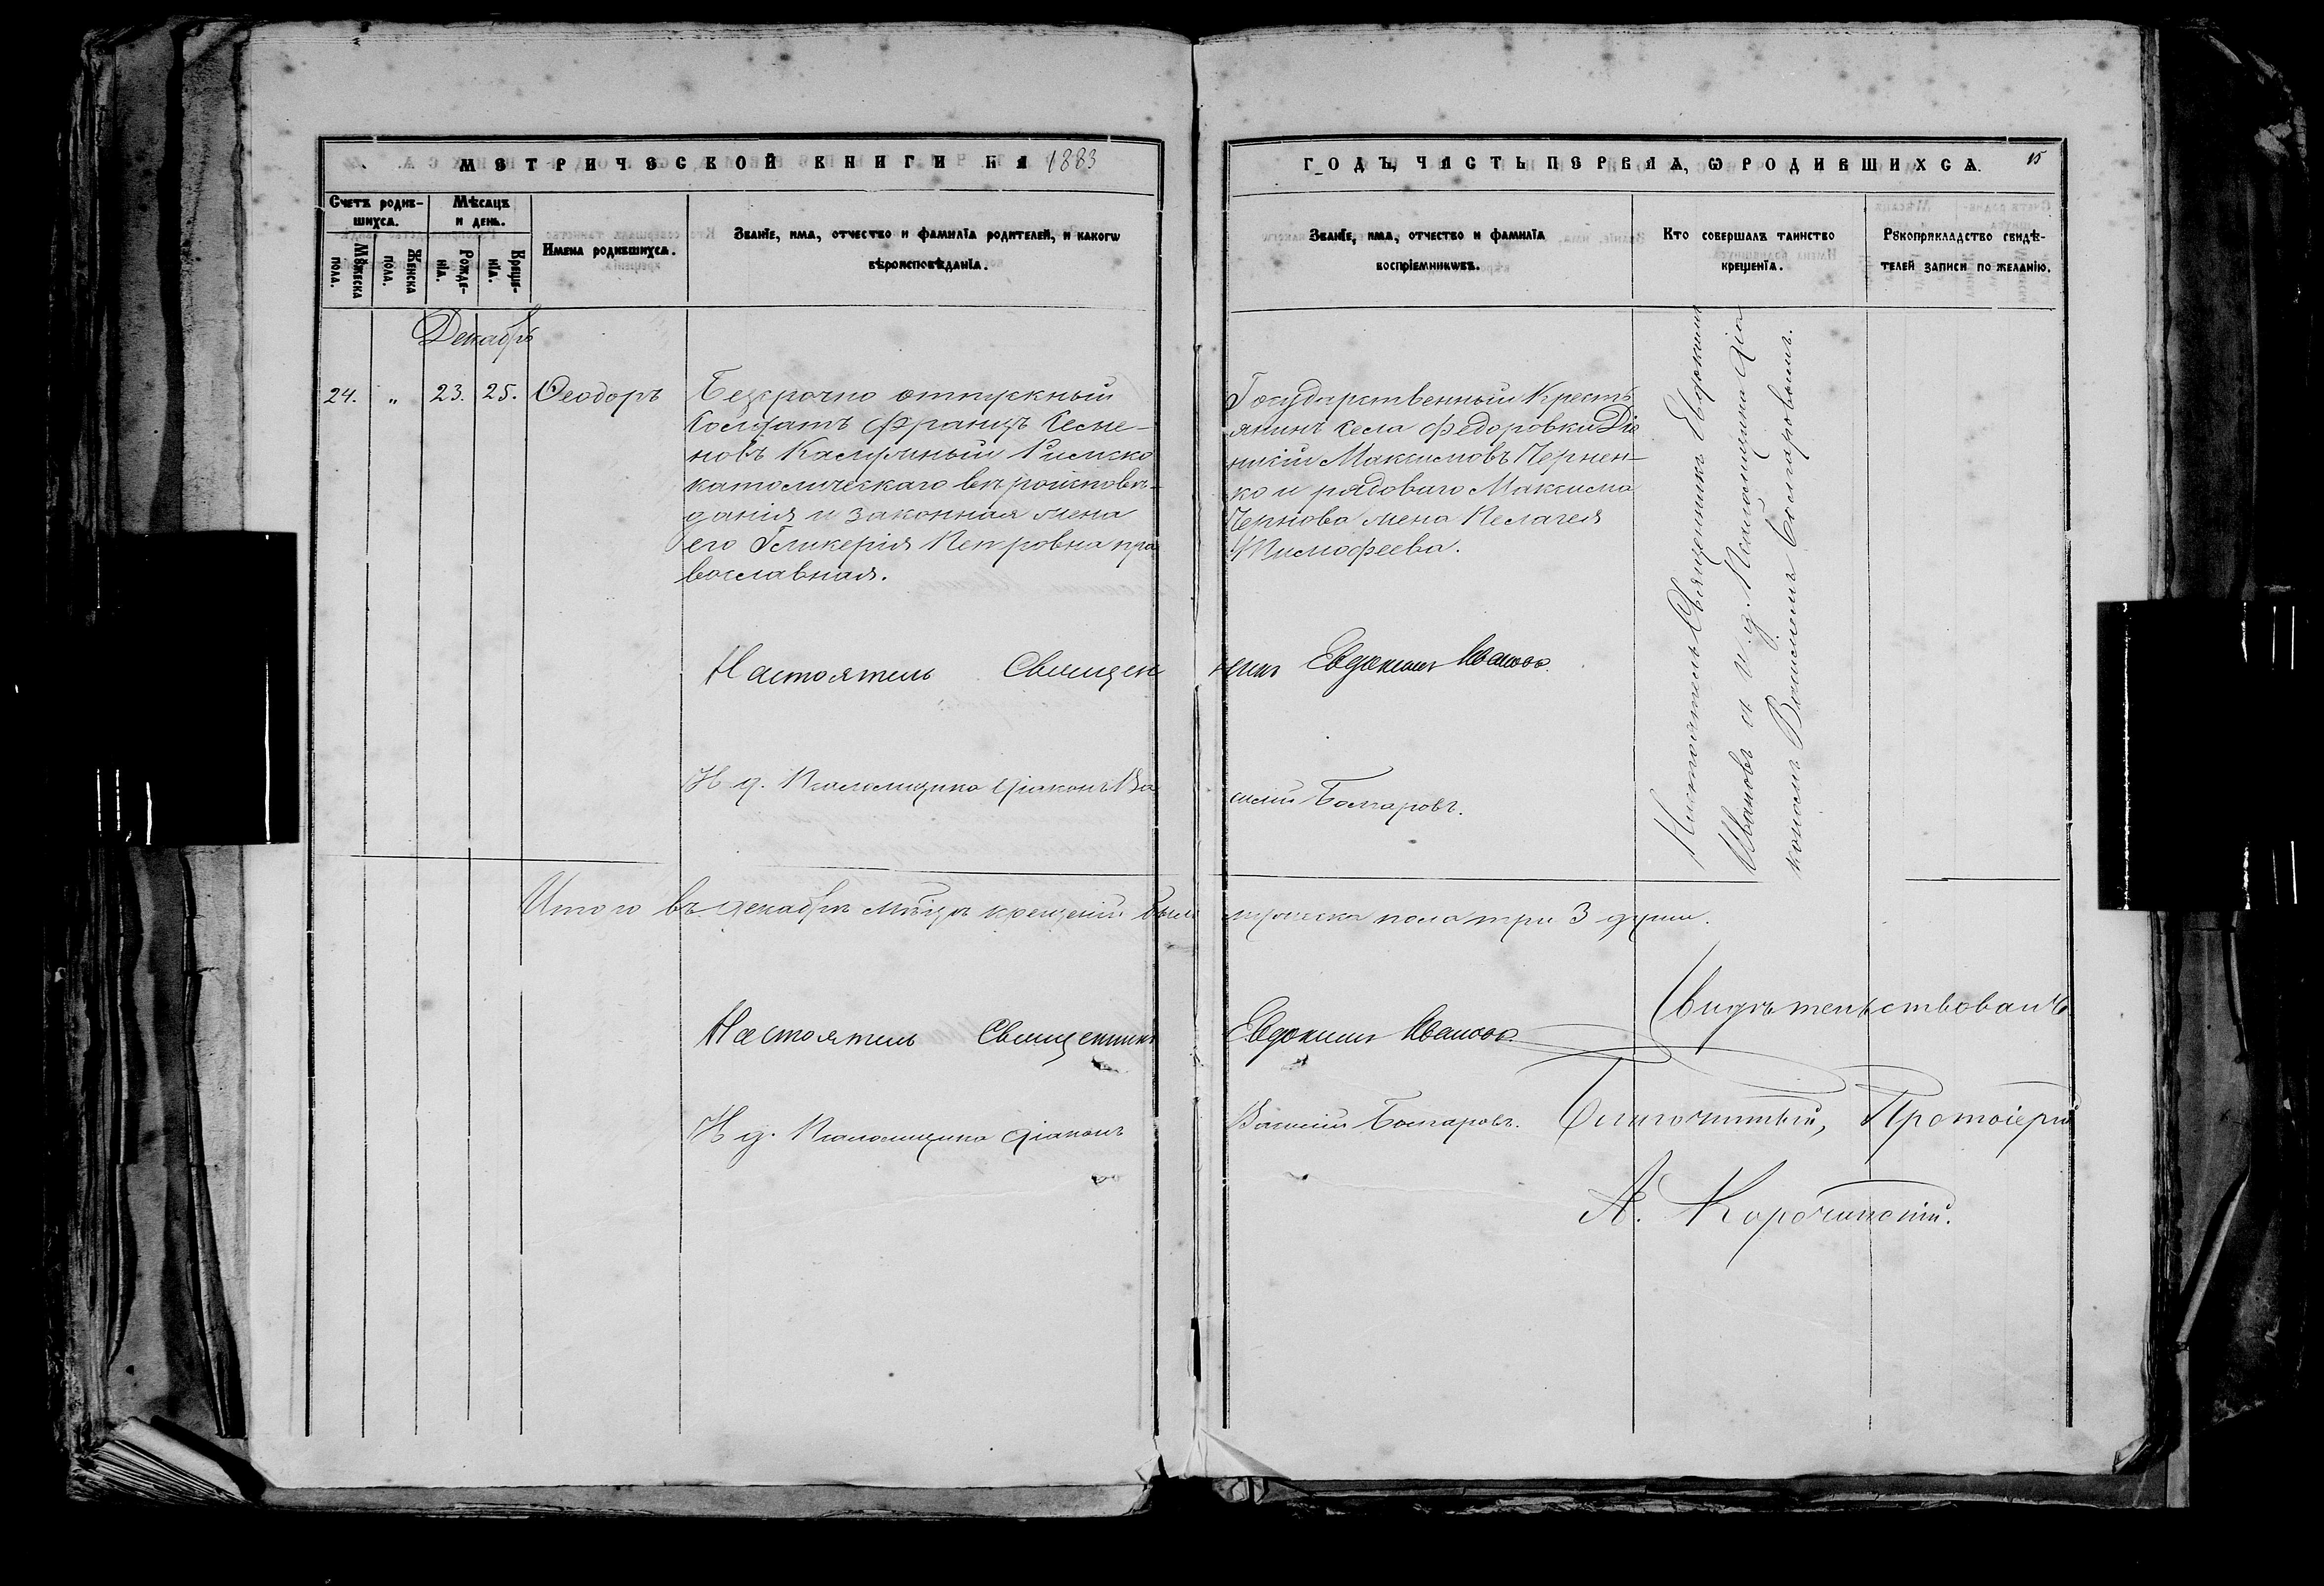 МЕТРИЧЕСКОЙ КНИГИ НА 1883
ГОДЪ, ЧАСТЬ ПЕРВАЯ, Ѡ РОДИВШИХСѦ. 15
Счетъ родив-
шихсѧ.
Мѣсѧцъ
и день.
Мꙋжеска
пола.
Женска
пола.
Рожде-
нїѧ.
Креще-
нїѧ.
Имена родившихсѧ.
Званїе, имѧ, отчество и фамилїѧ родителей, и какогѡ
вѣроисповѣданїѧ.
Званїе, имѧ, отчество и фамилїѧ
воспрїемникѡвъ.
Кто совершалъ таинство
крещенїѧ.
Рꙋкоприкладство свидѣ-
телей записи по желанїю.
Декабрь
24. „ 23. 25. Ѳеодоръ
Безсрочно отпускный
солдатъ Францъ
новъ Римско
католическаго вѣроисповѣ-
данія и законная жена
его Гликерія Петровна пра
вославная.
Государственный Кресть
янинъ села Федоровки Діо
нисій Максимовъ Чернен-
ко и рядоваго Максима
Чернова жена Пелагея
Тимофеева.
Настоятель Священникъ Евдокимъ
Ивановъ и и. д. Псаломщика Діа
кономъ Василіемъ Болгаровымъ.
Настоятель Священ никъ Евдокимъ Ивановъ.
И. д. Псаломщика Діаконъ Ва силій Болгаровъ.
Итого въ декабрѣ мѣсяцѣ крещеній было мужеска пола три 3 души.
Настоятель Священникъ Евдокимъ Ивановъ.
И. д. Псаломщика Діаконъ Василій Болгаровъ.
Свидѣтельствовалъ
Благочинный, Протоіерей
А. Корочанскій.